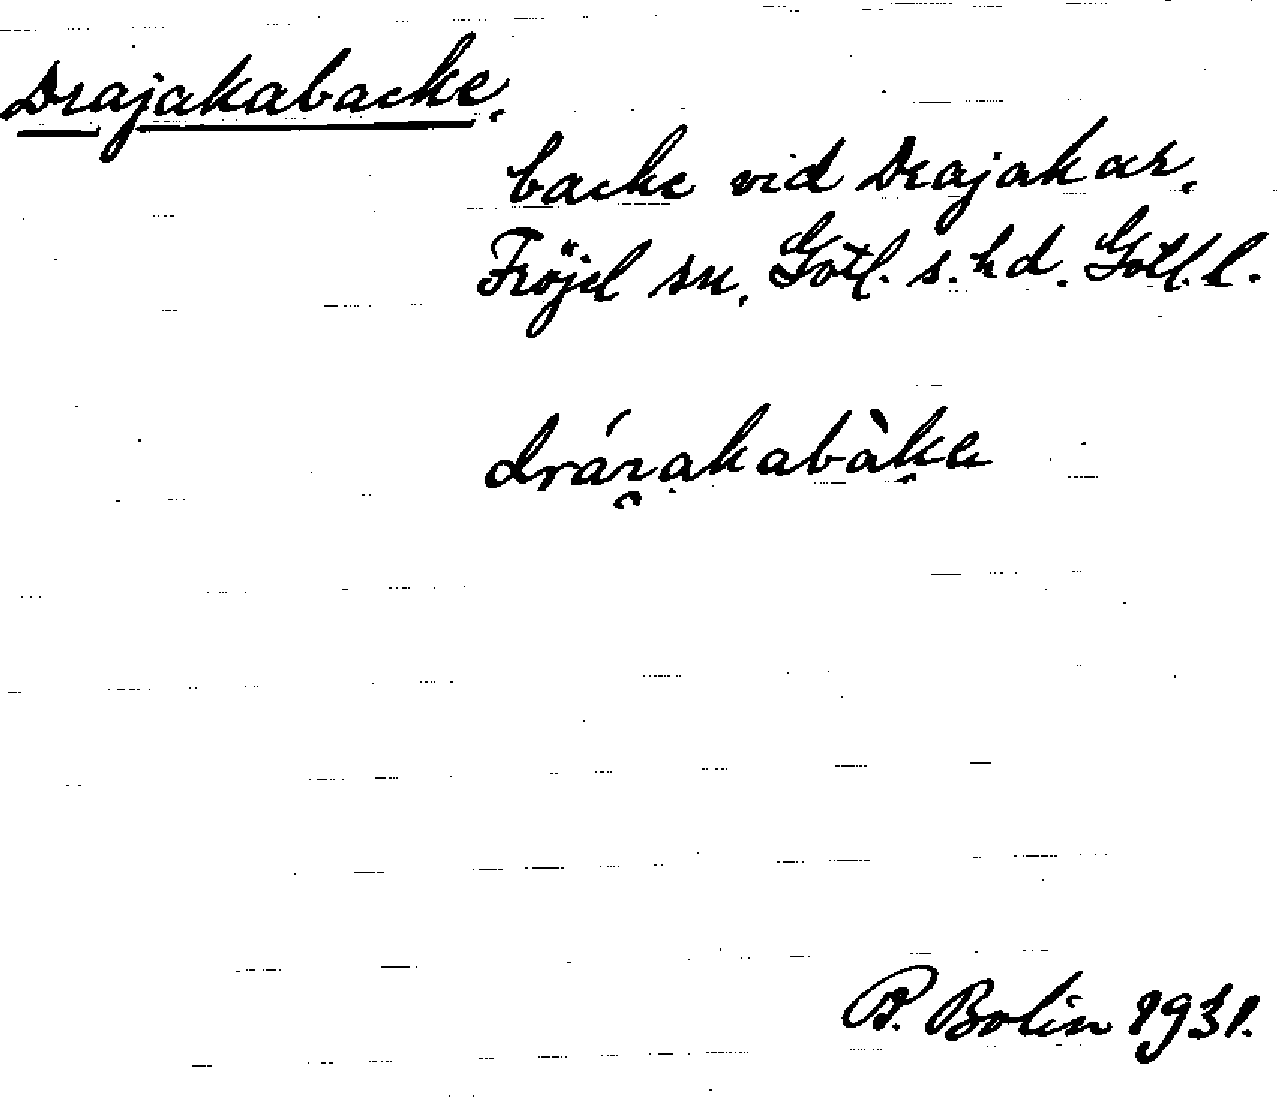 Drajakabacke.
backe vid Drajakar.
Fröjel sn, Gotl. s. hd. Gotl. l.
Bolin 1931.